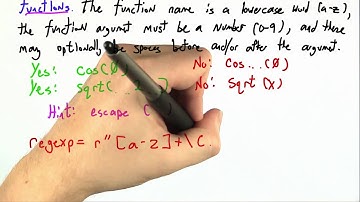 functions. The function name is a lowercase word (a-z),
the function argumt must be a number (0-9), and there
may optionally be spaces before and/or after the argumt.
Yes: cos(0) No: Cos...(0)
Yes: sqrt( No: Sqrt (x)
Hint: escape (
regexp= r"[a-z]+\(